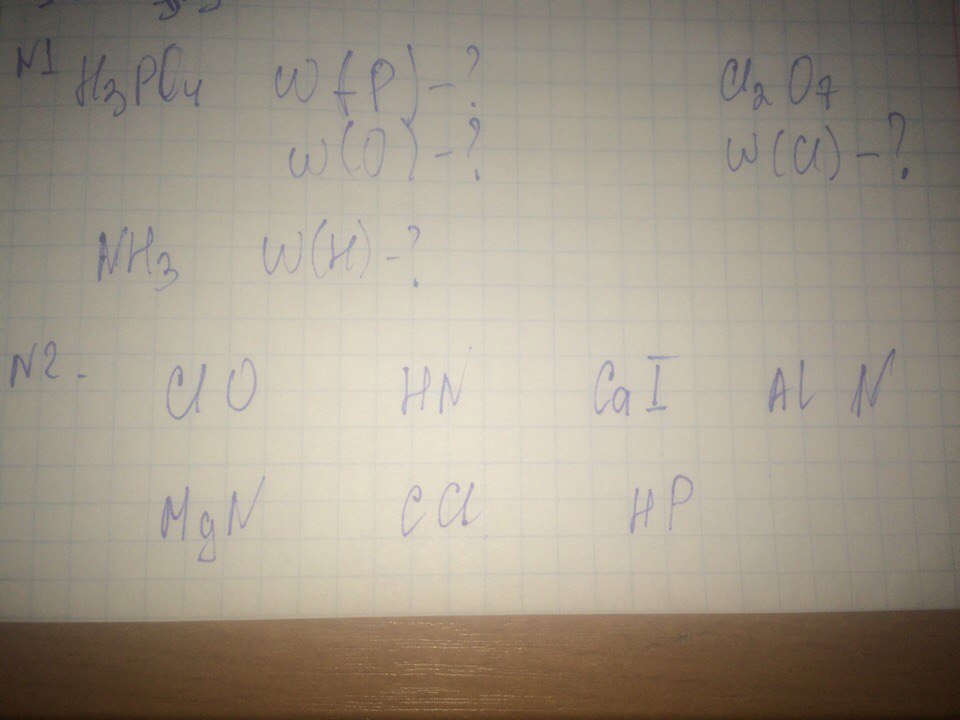 N1 H₃PO₄ W(P)-? Cl₂O₇
W(O)-? W(Cl)-?
NH₃ W(H)-?
N2. ClO HN CaI AlN
MgN CCl HP